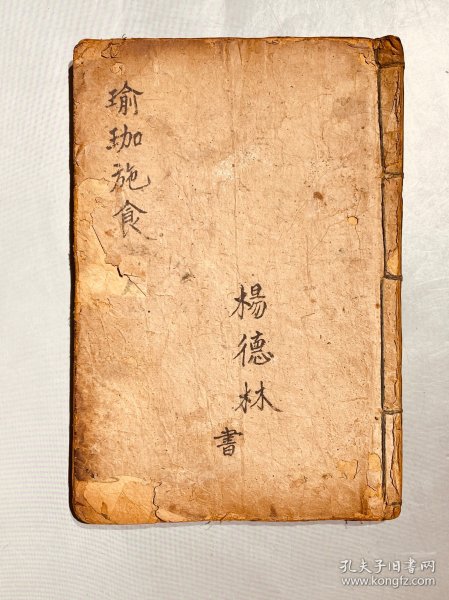 瑜珈施食
楊德林
書
孔夫子旧书网
www.kongfz.com